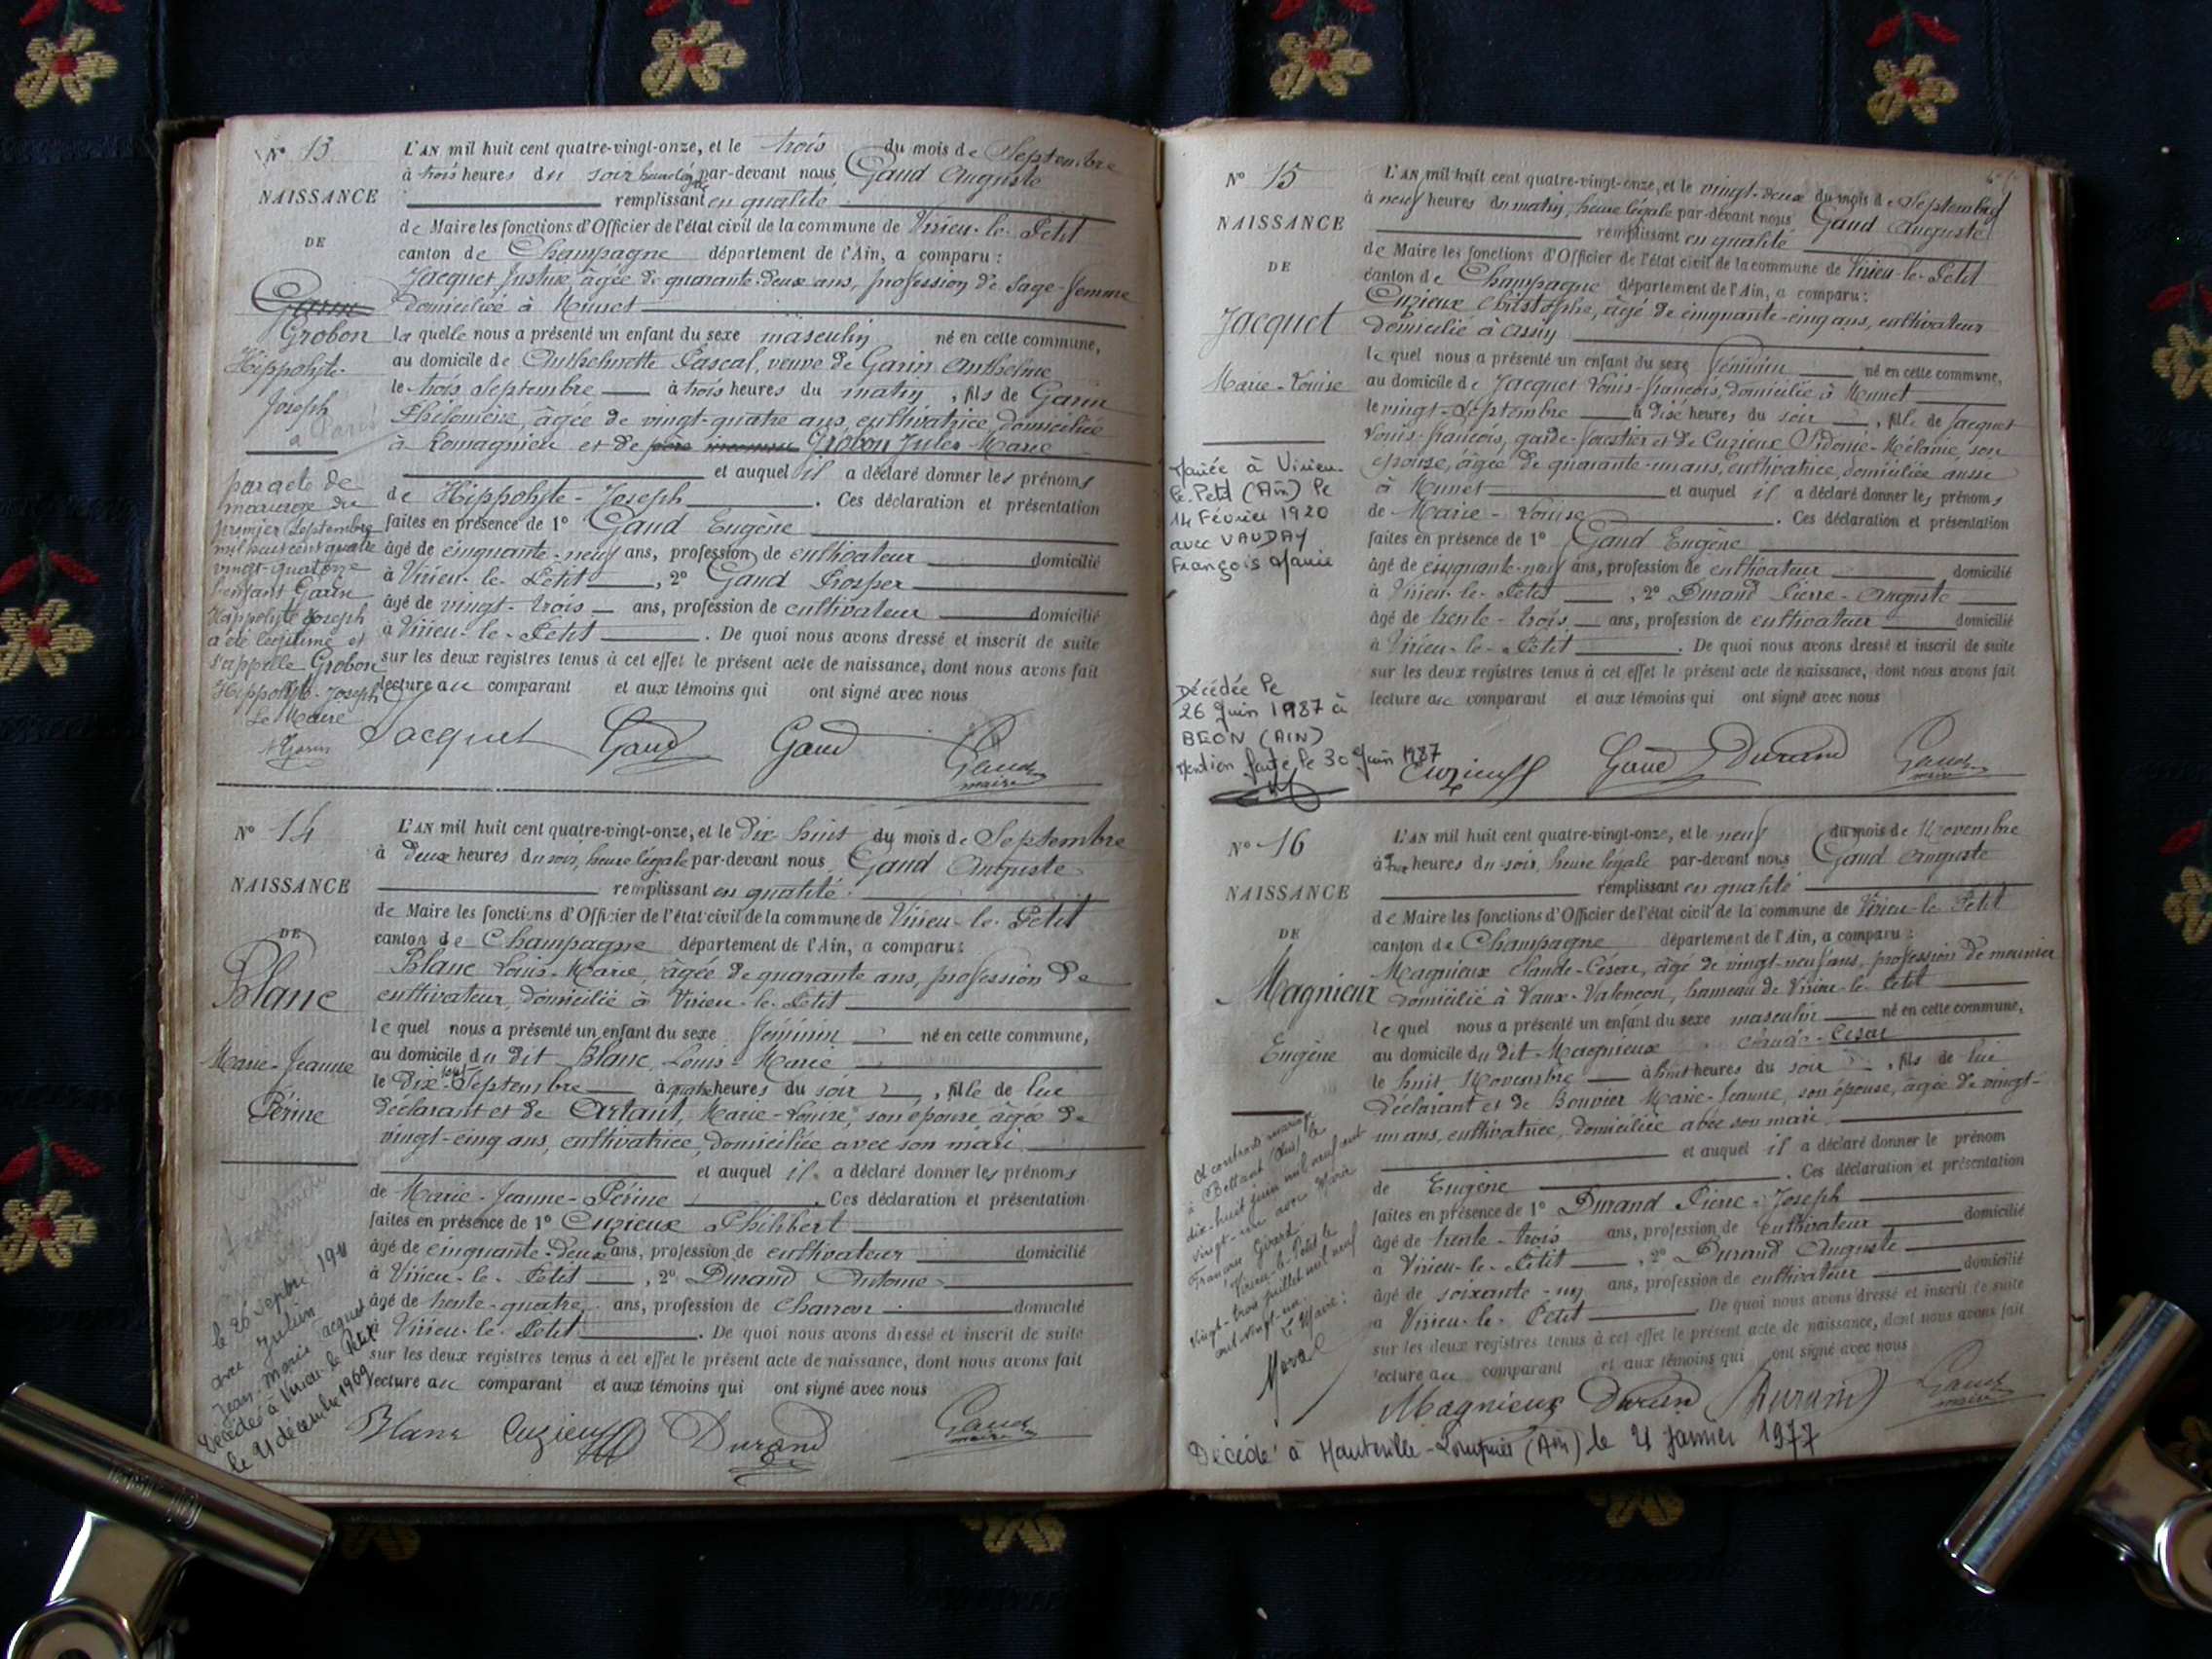 N° 13
NAISSANCE
DE
Garin
Grobon
Hippolyte-
Joseph
par acte de
mariage du
premier Septembre
mil huit cent quatre
vingt-quatorze
l'enfant Garin
Hippolyte Joseph
a été légitimé et
s'appelle Grobon
Hippolyte-Joseph
Le Maire
L'AN mil huit cent quatre-vingt-onze, et le trois du mois de Septembre
à trois heures du soir heure légale par-devant nous Gaud Auguste
remplissant en qualité
de Maire les fonctions d'Officier de l'état civil de la commune de Virieu-le-Petit
canton de Champagne département de l'Ain, a comparu :
Jacquet Justine, âgée de quarante-deux ans, profession de Sage-femme
domiciliée à Munet
la quelle nous a présenté un enfant du sexe masculin né en cette commune,
au domicile de Anthelmette Pascal, veuve de Garin Anthelme
le trois Septembre à trois heures du matin, fils de Garin
Philomène, âgée de vingt-quatre ans, cultivatrice, domiciliée
à Romagnieu et de père inconnu Grobon Jules-Marie
et auquel il a déclaré donner les prénoms
de Hippolyte-Joseph. Ces déclaration et présentation
faites en présence de 1° Gaud Eugène
âgé de cinquante-neuf ans, profession de cultivateur domicilié
à Virieu-le-Petit, 2° Gaud Prosper
âgé de vingt-trois ans, profession de cultivateur domicilié
à Virieu-le-Petit. De quoi nous avons dressé et inscrit de suite
sur les deux registres tenus à cet effet le présent acte de naissance, dont nous avons fait
lecture au comparant et aux témoins qui ont signé avec nous
Jacquet Gaud Gaud Gaud
maire
N° 14
NAISSANCE
DE
Blanc
Marie-Jeanne
Périne
le 26 Septbre 1911
avec Julien
Jean-Marie Jacquet
Décédée à Virieu-le-Petit
le 21 décembre 1969
L'AN mil huit cent quatre-vingt-onze, et le dix-huit du mois de Septembre
à deux heures du soir, heure légale par-devant nous Gaud Auguste
remplissant en qualité
de Maire les fonctions d'Officier de l'état civil de la commune de Virieu-le-Petit
canton de Champagne département de l'Ain, a comparu :
Blanc Louis-Marie, âgée de quarante ans, profession de
cultivateur, domicilié à Virieu-le-Petit
le quel nous a présenté un enfant du sexe féminin né en cette commune,
au domicile du dit Blanc Louis-Marie
le dix-sept Septembre à quatre heures du soir, fille de lui
déclarant et de Artaut, Marie-Louise, son épouse âgée de
vingt-cinq ans, cultivatrice, domiciliée avec son mari
et auquel il a déclaré donner les prénoms
de Marie-Jeanne-Périne. Ces déclaration et présentation
faites en présence de 1° Cuzieux Philibert
âgé de cinquante-deux ans, profession de cultivateur domicilié
à Virieu-le-Petit, 2° Durand Antoine
âgé de trente-quatre ans, profession de charron domicilié
à Virieu-le-Petit. De quoi nous avons dressé et inscrit de suite
sur les deux registres tenus à cet effet le présent acte de naissance, dont nous avons fait
lecture au comparant et aux témoins qui ont signé avec nous
Blanc Cuzieux Durand Gaud
maire
N° 15
NAISSANCE
DE
Jacquet
Marie-Louise
Mariée à Virieu-
le-Petit (Ain) le
14 Février 1920
avec VAUDAY
François Marie
Décédée le
26 Juin 1987 à
BEON (AIN)
Mention faite le 30 Juin 1987
L'AN mil huit cent quatre-vingt-onze, et le vingt-deux du mois de Septembre
à neuf heures du matin, heure légale par-devant nous Gaud Auguste
remplissant en qualité
de Maire les fonctions d'Officier de l'état civil de la commune de Virieu-le-Petit
canton de Champagne département de l'Ain, a comparu :
Cuzieux Christophe, âgé de cinquante-cinq ans, cultivateur
domicilié à Assin
le quel nous a présenté un enfant du sexe féminin né en cette commune,
au domicile de Jacquet Louis-François, domicilié à Munet
le vingt-Septembre à dix heures du soir, fille de Jacquet
Louis-François, garde-forestier et de Cuzieux Sidonie-Mélanie, son
épouse, âgée de quarante-un ans, cultivatrice, domiciliée aussi
à Munet et auquel il a déclaré donner les prénoms
de Marie-Louise. Ces déclaration et présentation
faites en présence de 1° Gaud Eugène
âgé de cinquante-neuf ans, profession de cultivateur domicilié
à Virieu-le-Petit, 2° Durand Pierre-Auguste
âgé de trente-trois ans, profession de cultivateur domicilié
à Virieu-le-Petit. De quoi nous avons dressé et inscrit de suite
sur les deux registres tenus à cet effet le présent acte de naissance, dont nous avons fait
lecture au comparant et aux témoins qui ont signé avec nous
Cuzieux Gaud Durand Gaud
maire
N° 16
NAISSANCE
DE
Magnieux
Eugène
A contracté mariage
à Belland (Ain) le
dix-huit juin mil neuf cent
vingt-un avec Marie
Girard
Virieu-le-Petit le
vingt-trois juillet mil neuf
cent vingt-un
Le Maire :
L'AN mil huit cent quatre-vingt-onze, et le neuf du mois de Novembre
à heures du soir, heure légale par-devant nous Gaud Auguste
remplissant en qualité
de Maire les fonctions d'Officier de l'état civil de la commune de Virieu-le-Petit
canton de Champagne département de l'Ain, a comparu :
Magnieux Claude-César, âgé de vingt-neuf ans, profession de meunier
domicilié à Vaux-Valencon, hameau de Virieu-le-Petit
le quel nous a présenté un enfant du sexe masculin né en cette commune,
au domicile du dit Magnieux Claude-César
le huit Novembre à huit heures du soir, fils de lui
déclarant et de Bouvier Marie-Jeanne, son épouse, âgée de vingt-
un ans, cultivatrice, domiciliée avec son mari
et auquel il a déclaré donner le prénom
de Eugène. Ces déclaration et présentation
faites en présence de 1° Durand Pierre-Joseph
âgé de trente-trois ans, profession de Cultivateur domicilié
à Virieu-le-Petit, 2° Durand Auguste
âgé de soixante-un ans, profession de cultivateur domicilié
à Virieu-le-Petit. De quoi nous avons dressé et inscrit de suite
sur les deux registres tenus à cet effet le présent acte de naissance, dont nous avons fait
lecture au comparant et aux témoins qui ont signé avec nous
Magnieux Durand Durand Gaud
maire
Décédé à Hauteville-Lompnes (Ain) le 21 janvier 1977